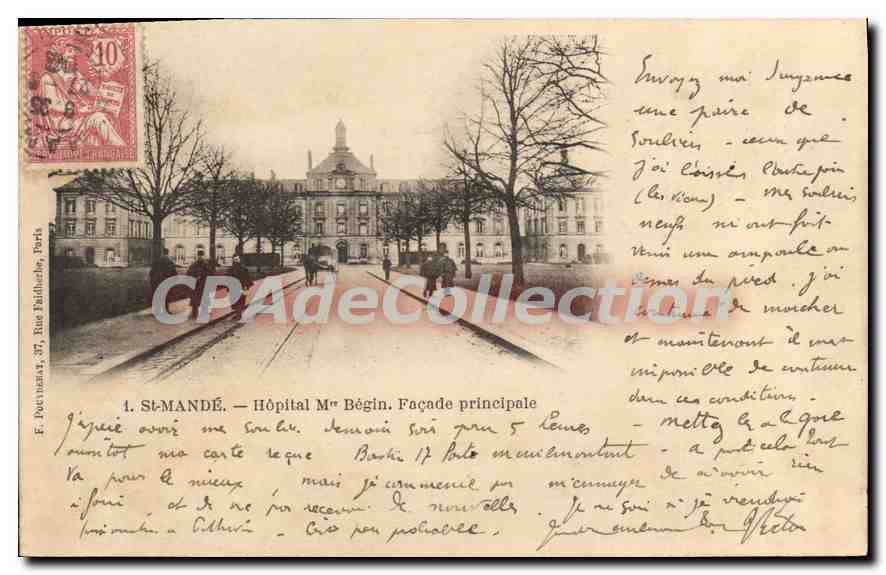 10
RÉPUBLIQUE FRANÇAISE
Envoyez moi d'urgence
une paire de
Souliers — ceux que
j'ai laissés l'autre fois
(les vieux) — Mes souliers
neufs m'ont fait
venir une ampoule au
du pied. J'ai
continué de marcher
et maintenant il m'est
impossible de continuer
dans ces conditions.
F. POUYDEBAT, 37, Rue Faidherbe, Paris
CPArtadeCollection
1. St-MANDÉ. — Hôpital Mre Bégin. Façade principale
— Mettez les à la gare
J'espère avoir mes souliers demain soir pour 5 heures
aussitôt ma carte reçue Bastion 17 Porte Menilmontant — à part cela tout
va pour le mieux, mais je commence par m'ennuyer de n'avoir rien
et de ne pas recevoir de nouvelles. Je ne sais si je viendrai
dimanche à — C'est peu probable.
Victor